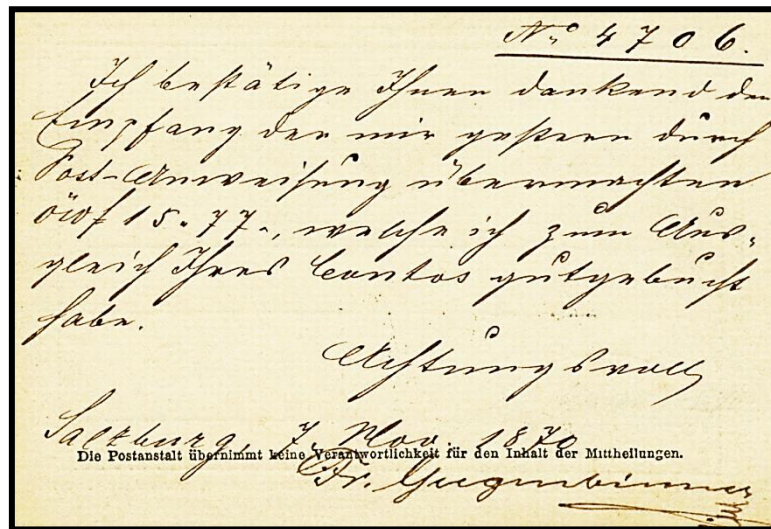 No 4706.
Ich bestätige Ihnen dankend den
Empfang der mir gestern durch
Post-Anweisung übermachten
öWf 15.77-, welche ich zum Aus-
gleich Ihres Contos gutgebucht
habe.
Achtungsvoll
Salzburg, 7. Nov. 1870
Die Postanstalt übernimmt keine Verantwortlichkeit für den Inhalt der Mittheilungen.
Fr.